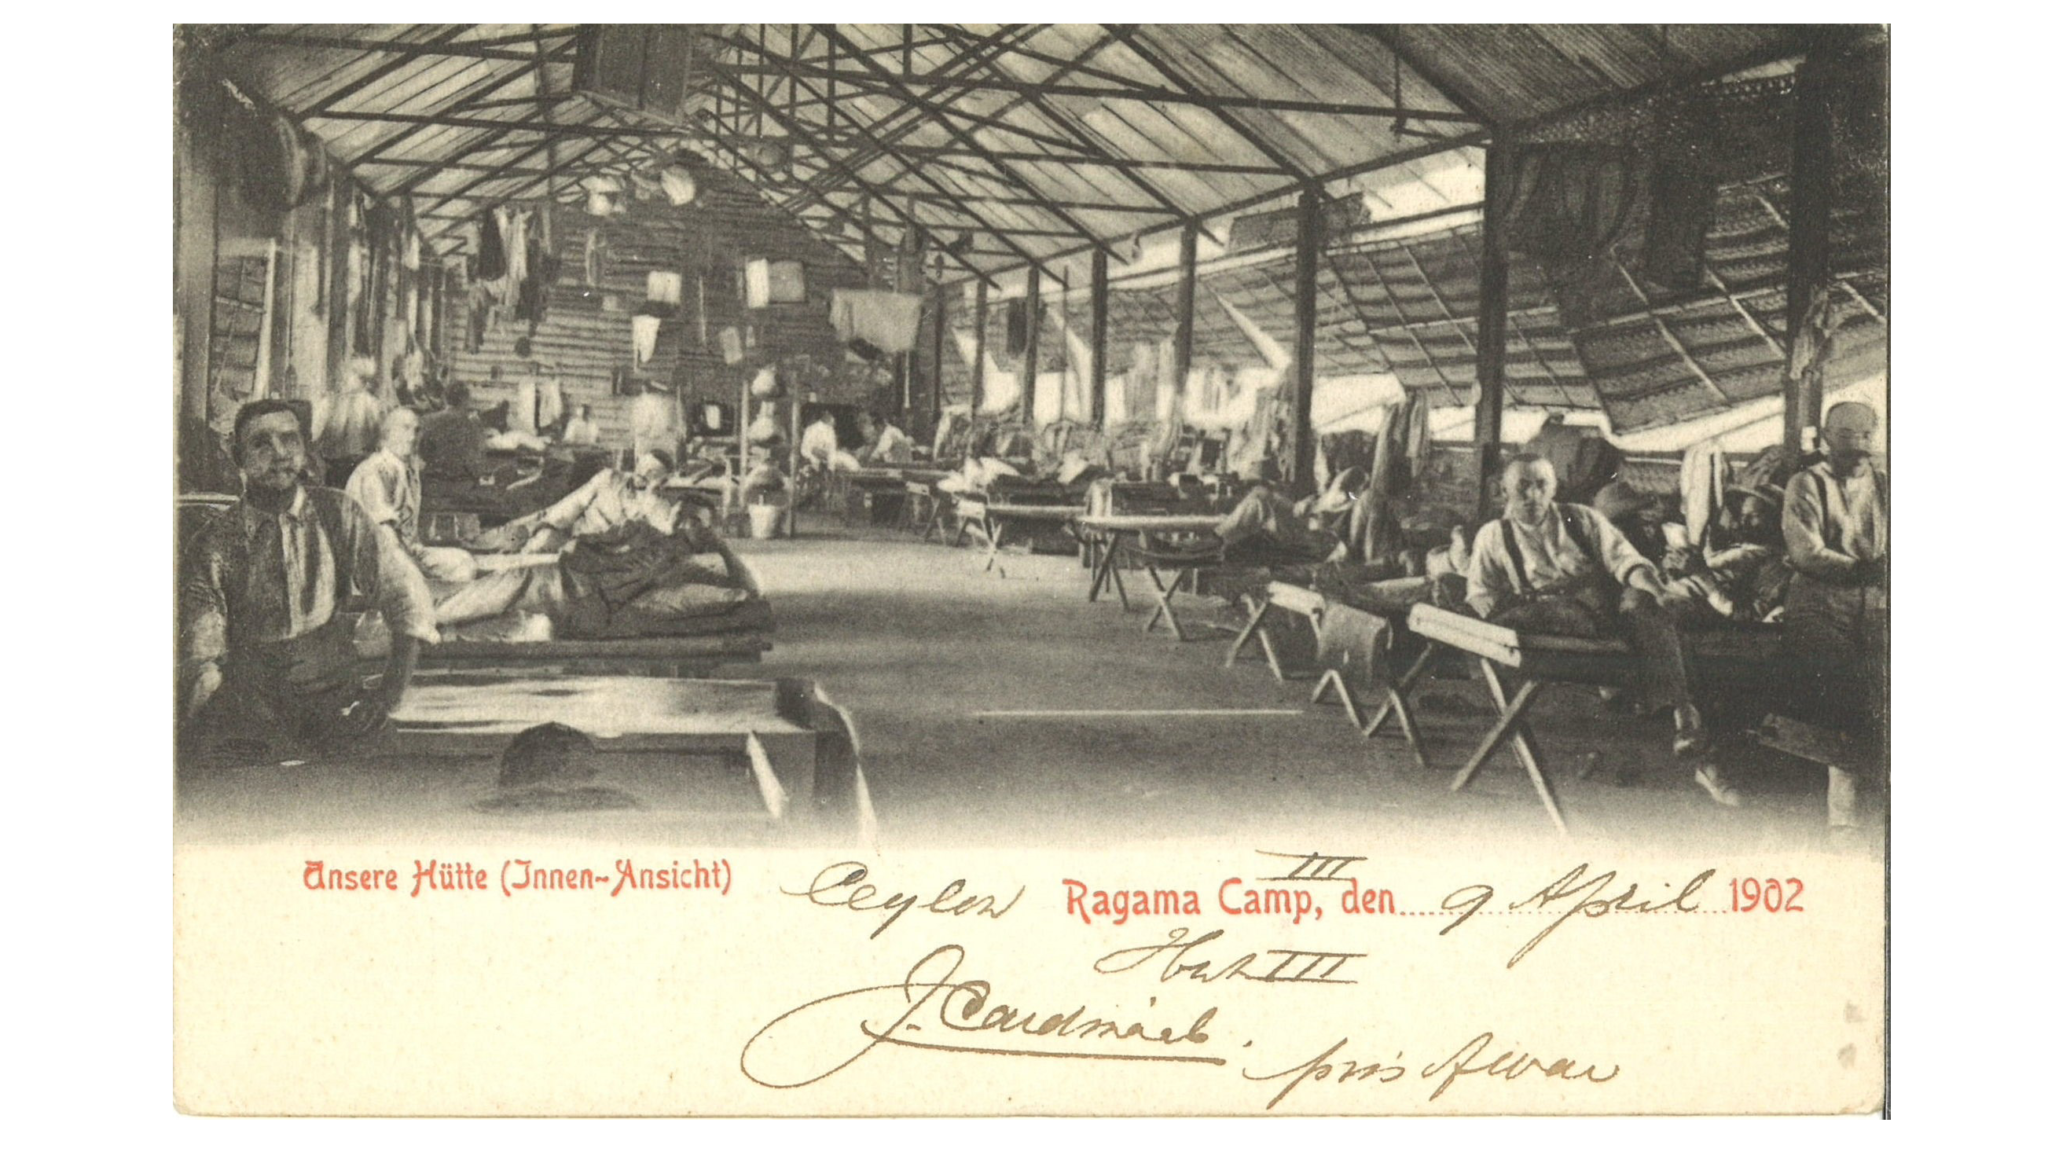 Unsere Hütte (Innen-Ansicht)
Ceylon III Ragama Camp, den 9 April 1902
Hut III
J.
pris of war